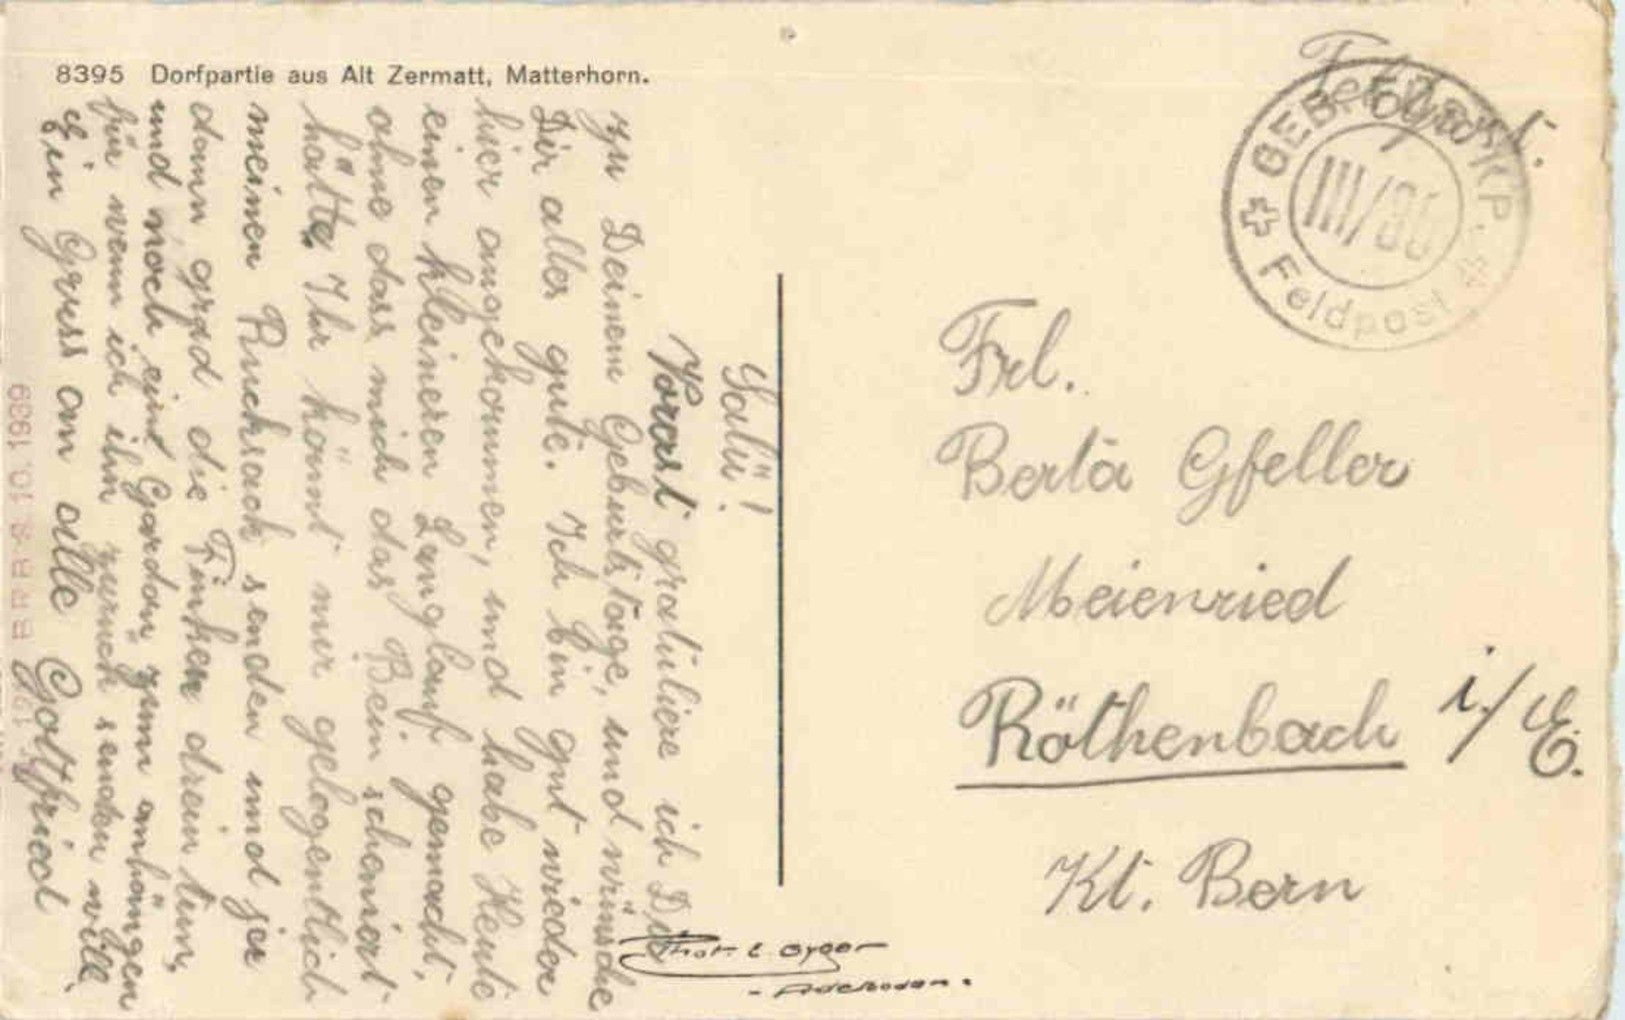 8395 Dorfpartie aus Alt Zermatt, Matterhorn.
Salü!
Vorast gratuliere ich Dir
zu Deinem Geburtstage, und wünsche
Dir alles gute. Ich bin gut wieder
hier angekommen, und habe Heute
einen kleineren Langlauf gemacht,
ohne dass mich das Bein scheniert
hätte. Ihr könnt mir gelegentlich
meinen Rucksack senden und
dann grad die Finken drein tun,
und noch eine zum anhängen
für wenn ich ihn zurück senden will.
Ein Gruss an alle Gottfried
Feldpost.
GEB. FÜS. KP.
III/36
Feldpost
Frl.
Berta Gfeller
Meienried
Röthenbach i/E.
Kt. Bern
Phot. E. Gyger
- Adelboden -